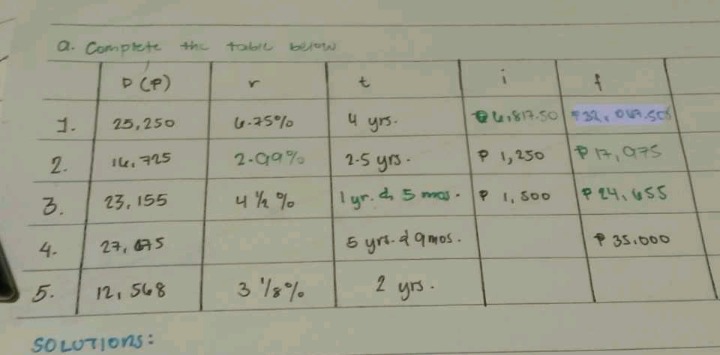 a. Complete the table below
P (₱) r t i f
1. 25,250 6.75% 4 yrs. ₱6,817.50 ₱32,067.50
2. 16,725 2.99% 2.5 yrs. ₱ 1,250 ₱17,975
3. 23,155 4 ½ % 1 yr. & 5 mos. ₱ 1,500 ₱24,655
4. 27,675 5 yrs. & 9 mos. ₱ 35,000
5. 12,568 3 ⅛% 2 yrs.
SOLUTIONS: